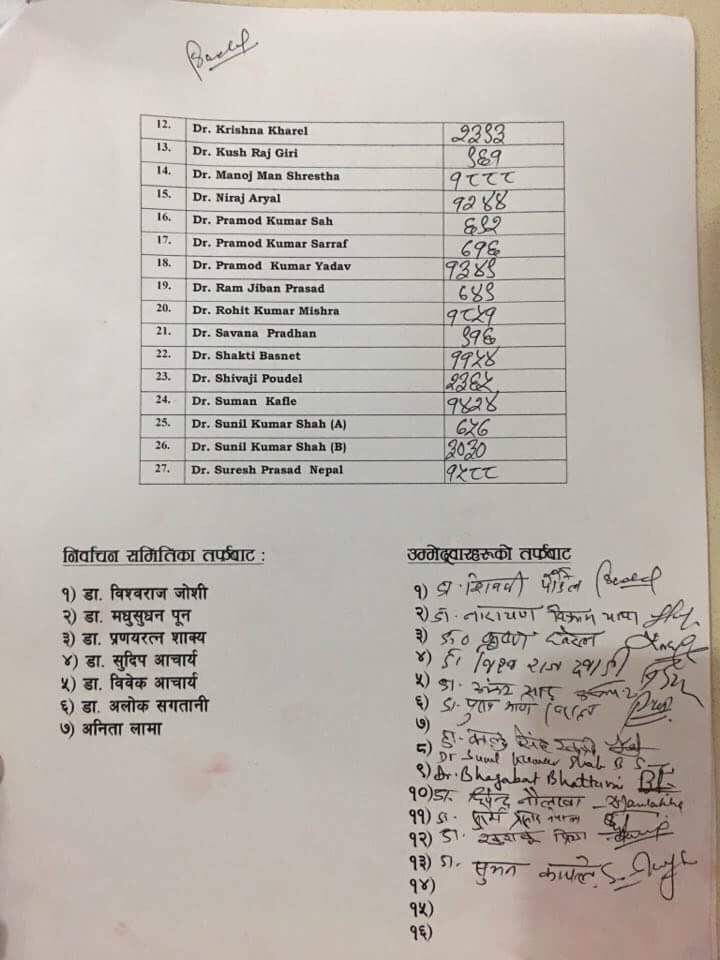 12. Dr. Krishna Kharel २३९३
13. Dr. Kush Raj Giri ९६१
14. Dr. Manoj Man Shrestha १८८८
15. Dr. Niraj Aryal १२४४
16. Dr. Pramod Kumar Sah ६९२
17. Dr. Pramod Kumar Sarraf ७१६
18. Dr. Pramod Kumar Yadav १३४९
19. Dr. Ram Jiban Prasad ७४९
20. Dr. Rohit Kumar Mishra १८५१
21. Dr. Savana Pradhan ९१६
22. Dr. Shakti Basnet ११५४
23. Dr. Shivaji Poudel २३६५
24. Dr. Suman Kafle १४२४
25. Dr. Sunil Kumar Shah (A) ७५७
26. Dr. Sunil Kumar Shah (B) ३०३०
27. Dr. Suresh Prasad Nepal १५८८
निर्वाचन समितिका तर्फबाट :
१) डा. विश्वराज जोशी
२) डा. मधुसुधन पून
३) डा. प्रणयरत्न शाक्य
४) डा. सुदिप आचार्य
५) डा. विवेक आचार्य
६) डा. अलोक सगतानी
७) अनिता लामा
उम्मेद्वारहरूको तर्फबाट
१) डा. शिवजी पौडेल
२) डा. नारायण विक्रम थापा
३) डा० कृष्ण खरेल
४) डा. विश्व राज
५) डा.
६) डा.
७)
८) डा.
Dr Sunil Kumar Shah B
९) Dr. Bhagabat Bhattarai
१०) डा. दिपेन्द्र नौलखा
११) डा. प्रसाद नेपाल
१२) डा.
१३) डा. सुमन काफ्ले
१४)
१५)
१६)